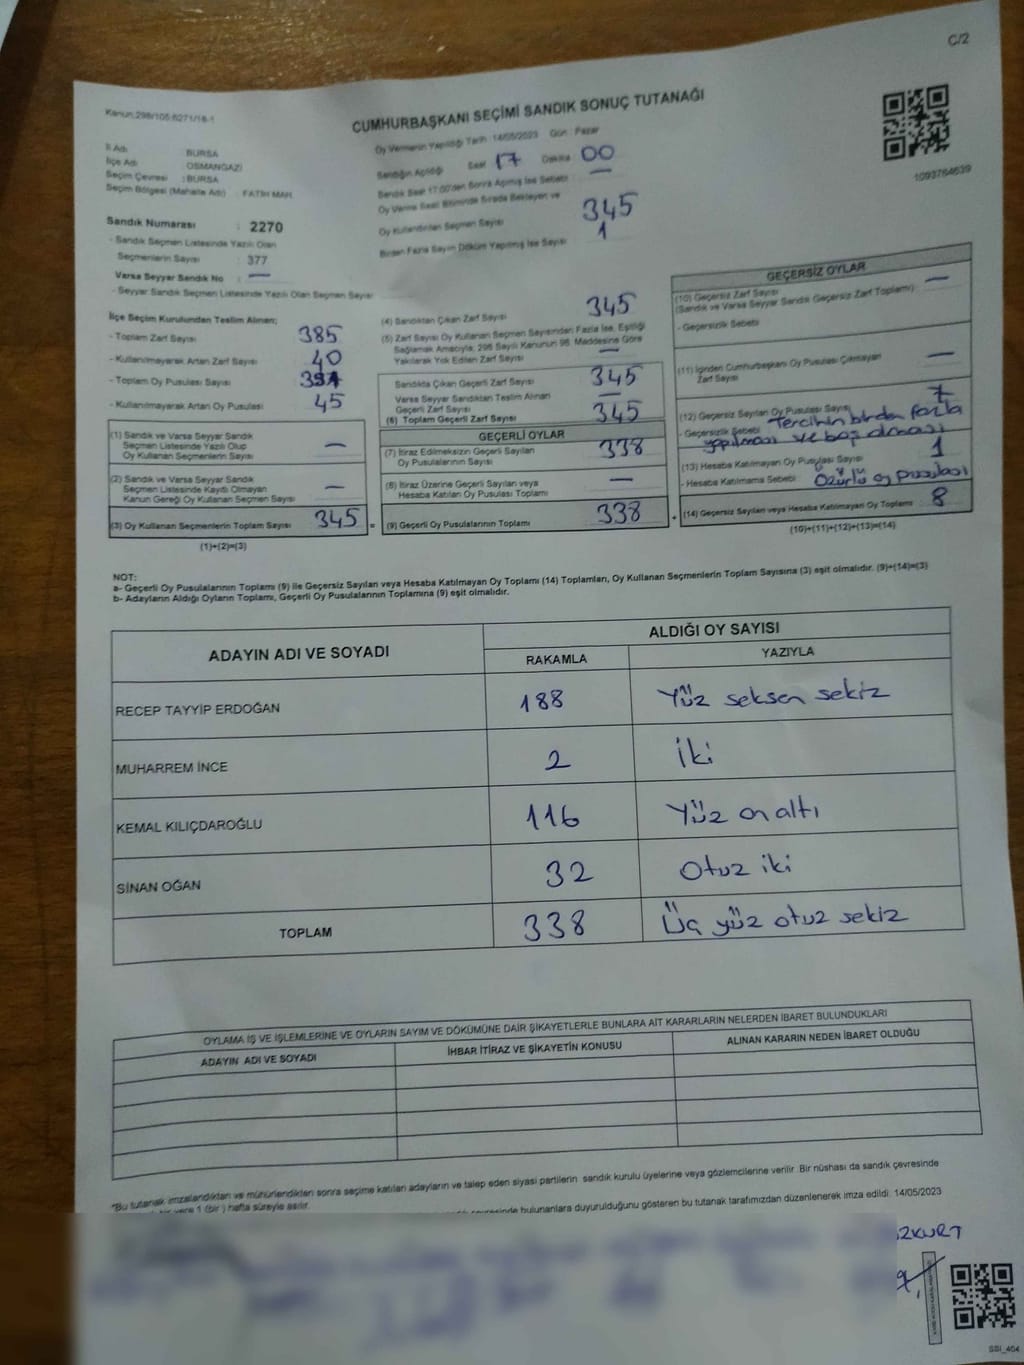 C/2
Kanun:298/105-6271/18-1
CUMHURBAŞKANI SEÇİMİ SANDIK SONUÇ TUTANAĞI
Oy Vermenin Yapıldığı Tarih : 14/05/2023 Gün : Pazar
İl Adı : BURSA
İlçe Adı : OSMANGAZİ
Seçim Çevresi : BURSA
Seçim Bölgesi (Mahalle Adı) : FATİH MAH.
Sandığın Açıldığı Saat 17 Dakika 00
Sandık Saat 17:00'den Sonra Açılmış İse Sebebi : —
Oy Verme Saati Bitiminde Sırada Bekleyen ve
Oy Kullandırılan Seçmen Sayısı 345
Birden Fazla Sayım Döküm Yapılmış İse Sayısı 1
1093784639
Sandık Numarası : 2270
- Sandık Seçmen Listesinde Yazılı Olan
Seçmenlerin Sayısı : 377
Varsa Seyyar Sandık No : —
- Seyyar Sandık Seçmen Listesinde Yazılı Olan Seçmen Sayısı
İlçe Seçim Kurulundan Teslim Alınan;
- Toplam Zarf Sayısı 385
- Kullanılmayarak Artan Zarf Sayısı 40
- Toplam Oy Pusulası Sayısı
- Kullanılmayarak Artan Oy Pusulası 45
(1) Sandık ve Varsa Seyyar Sandık
Seçmen Listesinde Yazılı Olup
Oy Kullanan Seçmenlerin Sayısı —
(2) Sandık ve Varsa Seyyar Sandık
Seçmen Listesinde Kayıtlı Olmayan
Kanun Gereği Oy Kullanan Seçmen Sayısı —
(3) Oy Kullanan Seçmenlerin Toplam Sayısı 345 =
(1)+(2)=(3)
(4) Sandıktan Çıkan Zarf Sayısı 345
(5) Zarf Sayısı Oy Kullanan Seçmen Sayısından Fazla İse, Eşitliği
Sağlamak Amacıyla; 298 Sayılı Kanunun 98. Maddesine Göre
Yakılarak Yok Edilen Zarf Sayısı —
Sandıkta Çıkan Geçerli Zarf Sayısı 345
Varsa Seyyar Sandıktan Teslim Alınan
Geçerli Zarf Sayısı —
(6) Toplam Geçerli Zarf Sayısı 345
GEÇERLİ OYLAR
(7) İtiraz Edilmeksizin Geçerli Sayılan
Oy Pusulalarının Sayısı 338
(8) İtiraz Üzerine Geçerli Sayılan veya
Hesaba Katılan Oy Pusulası Toplamı —
(9) Geçerli Oy Pusulalarının Toplamı 338 +
GEÇERSİZ OYLAR
(10) Geçersiz Zarf Sayısı
(Sandık ve Varsa Seyyar Sandık Geçersiz Zarf Toplamı) —
- Geçersizlik Sebebi
(11) İçinden Cumhurbaşkanı Oy Pusulası Çıkmayan
Zarf Sayısı —
(12) Geçersiz Sayılan Oy Pusulası Sayısı 7
- Geçersizlik Sebebi Tercihin birden fazla
yapılması ve boş olması
(13) Hesaba Katılmayan Oy Pusulası Sayısı 1
- Hesaba Katılmama Sebebi : Özürlü oy pusulası
(14) Geçersiz Sayılan veya Hesaba Katılmayan Oy Toplamı 8
(10)+(11)+(12)+(13)=(14)
NOT:
a- Geçerli Oy Pusulalarının Toplamı (9) ile Geçersiz Sayılan veya Hesaba Katılmayan Oy Toplamı (14) Toplamları, Oy Kullanan Seçmenlerin Toplam Sayısına (3) eşit olmalıdır. (9)+(14)=(3)
b- Adayların Aldığı Oyların Toplamı, Geçerli Oy Pusulalarının Toplamına (9) eşit olmalıdır.
ADAYIN ADI VE SOYADI ALDIĞI OY SAYISI
RAKAMLA YAZIYLA
RECEP TAYYİP ERDOĞAN 188 Yüz seksen sekiz
MUHARREM İNCE 2 İki
KEMAL KILIÇDAROĞLU 116 Yüz on altı
SİNAN OĞAN 32 Otuz iki
TOPLAM 338 Üç yüz otuz sekiz
OYLAMA İŞ VE İŞLEMLERİNE VE OYLARIN SAYIM VE DÖKÜMÜNE DAİR ŞİKAYETLERLE BUNLARA AİT KARARLARIN NELERDEN İBARET BULUNDUKLARI
ADAYIN ADI VE SOYADI İHBAR İTİRAZ VE ŞİKAYETİN KONUSU ALINAN KARARIN NEDEN İBARET OLDUĞU
*Bu tutanak imzalandıktan ve mühürlendikten sonra seçime katılan adayların ve talep eden siyasi partilerin sandık kurulu üyelerine veya gözlemcilerine verilir. Bir nüshası da sandık çevresinde
bir yere 1 (bir) hafta süreyle asılır.
çevresinde bulunanlara duyurulduğunu gösteren bu tutanak tarafımızdan düzenlenerek imza edildi. 14/05/2023
ZKURT
SSI_404